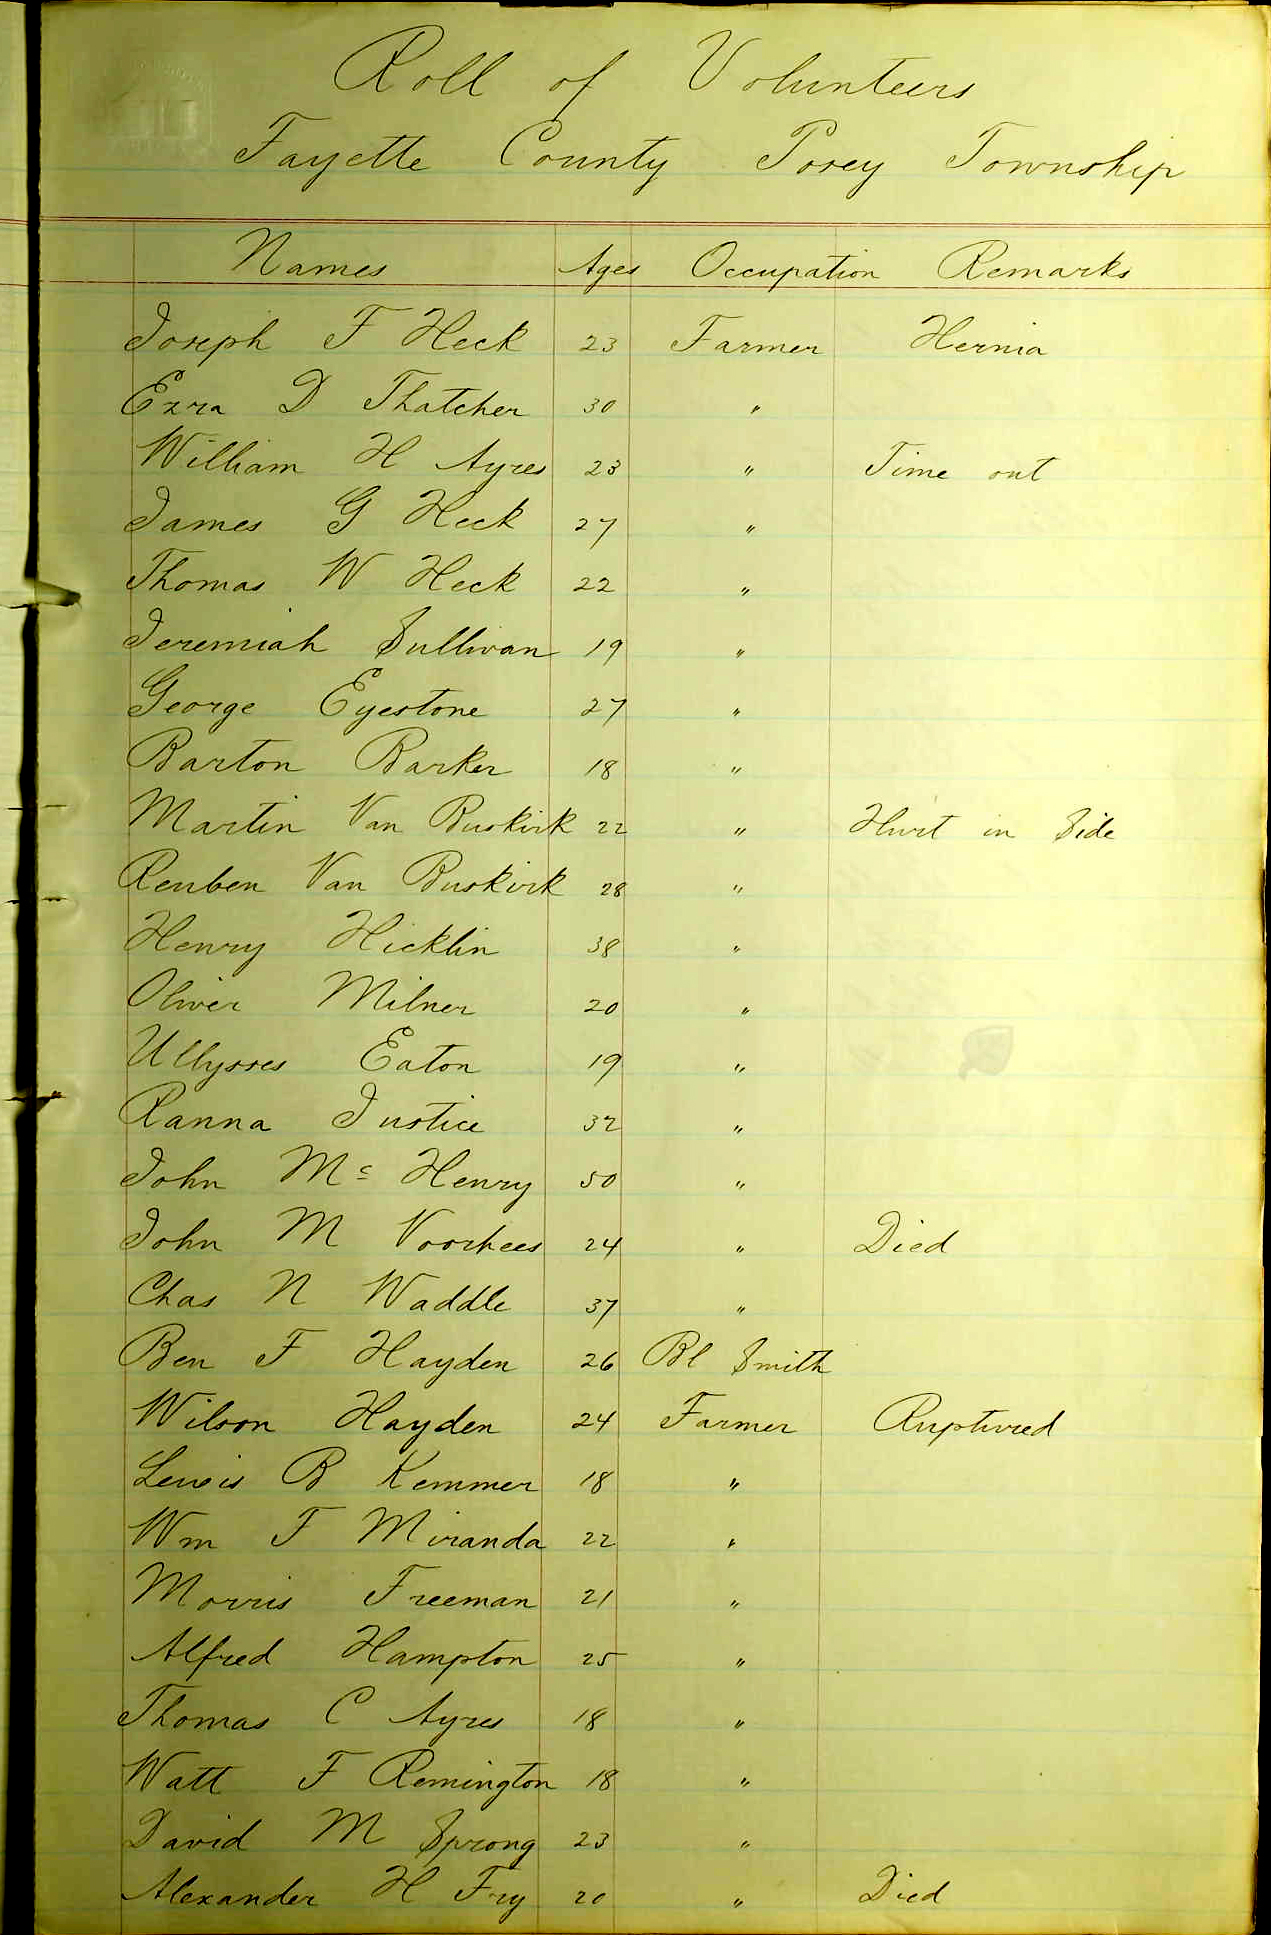 Roll of Volunteers
Fayette County Posey Township
Names Ages Occupation Remarks
Joseph F Heck 23 Farmer Hernia
Ezra D Thatcher 30 "
William H Ayres 23 " Time out
James G Heck 27 "
Thomas W Heck 22 "
Jeremiah Sullivan 19 "
George Eyestone 27 "
Barton Barker 18 "
Martin Van Buskirk 22 " Hurt in Side
Reuben Van Buskirk 28 "
Henry Hicklin 38 "
Oliver Milner 20 "
Ullysses Eaton 19 "
Ranna Justice 32 "
John Mc Henry 50 "
John M Voorhees 24 " Died
Chas N Waddle 37 "
Ben F Hayden 26 Bl Smith
Wilson Hayden 24 Farmer Ruptured
Lewis B Kemmer 18 "
Wm F Miranda 22 "
Morris Freeman 21 "
Alfred Hampton 25 "
Thomas C Ayres 18 "
Watt F Remington 18 "
David M Sprong 23 "
Alexander H Fry 20 " Died